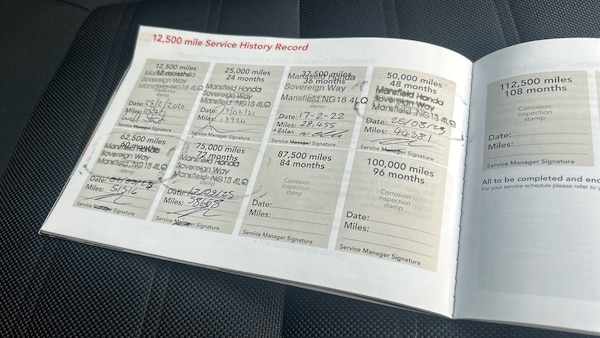 12,500 mile Service History Record
12,500 miles
12 months
Mansfield Honda
Sovereign Way
Mansfield NG18 4LQ
Date:
Miles:
Service Manager Signature
25,000 miles
24 months
Mansfield Honda
Sovereign Way
Mansfield NG18 4LQ
Date:
Miles:
Service Manager Signature
37,500 miles
36 months
Mansfield Honda
Sovereign Way
Mansfield NG18 4LQ
Date: 17-2-22
Miles: 29,455
Service Manager Signature
50,000 miles
48 months
Mansfield Honda
Sovereign Way
Mansfield NG18 4LQ
Date:
Miles:
Service Manager Signature
62,500 miles
60 months
Mansfield Honda
Sovereign Way
Mansfield NG18 4LQ
Date:
Miles: 51516
Service Manager Signature
75,000 miles
72 months
Mansfield Honda
Sovereign Way
Mansfield NG18 4LQ
Date: 12/09/25
Miles: 58668
Service Manager Signature
87,500 miles
84 months
Corrosion
inspection
stamp
Date:
Miles:
Service Manager Signature
100,000 miles
96 months
Corrosion
inspection
stamp
Date:
Miles:
Service Manager Signature
112,500 miles
108 months
Corrosion
inspection
stamp
Date:
Miles:
Service Manager Signature
All to be completed and
For your service schedule please refer to